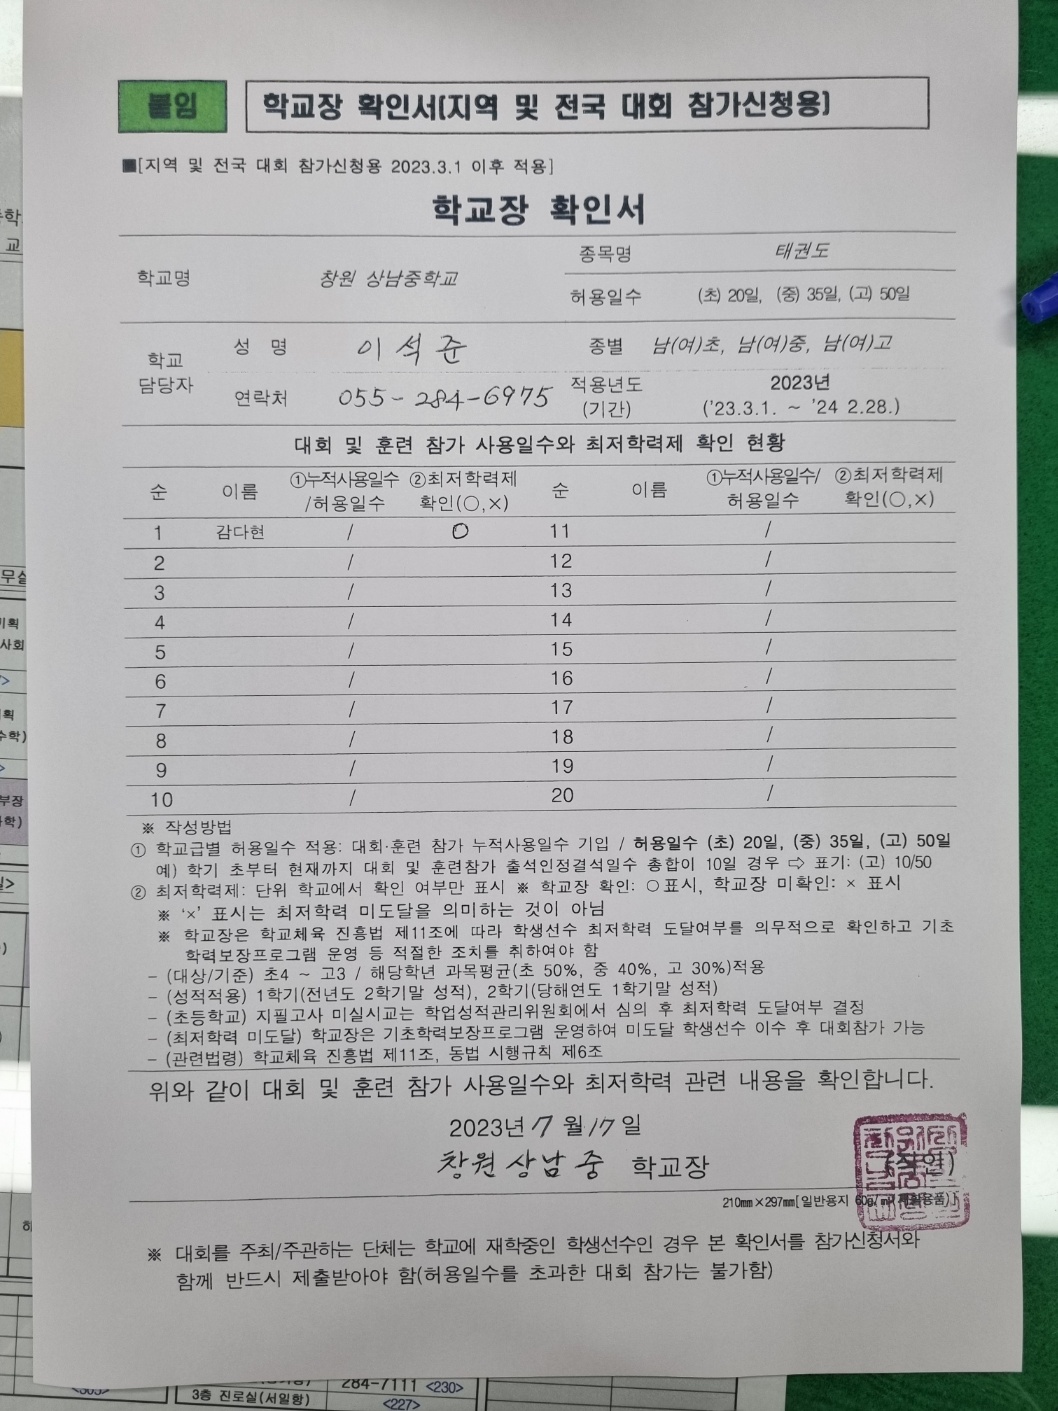 붙임 학교장 확인서(지역 및 전국 대회 참가신청용)
■[지역 및 전국 대회 참가신청용 2023.3.1 이후 적용]
학교장 확인서
학교명 창원 상남중학교 종목명 태권도
허용일수 (초) 20일, (중) 35일, (고) 50일
학교 담당자 성 명 이석준 종별 남(여)초, 남(여)중, 남(여)고
연락처 055-284-6975 적용년도 (기간) 2023년 ('23.3.1. ~ '24 2.28.)
대회 및 훈련 참가 사용일수와 최저학력제 확인 현황
순 이름 ①누적사용일수/허용일수 ②최저학력제 확인(○,×) 순 이름 ①누적사용일수/허용일수 ②최저학력제 확인(○,×)
1 감다현 / ○ 11 /
2 / 12 /
3 / 13 /
4 / 14 /
5 / 15 /
6 / 16 /
7 / 17 /
8 / 18 /
9 / 19 /
10 / 20 /
※ 작성방법
① 학교급별 허용일수 적용: 대회·훈련 참가 누적사용일수 기입 / 허용일수 (초) 20일, (중) 35일, (고) 50일
예) 학기 초부터 현재까지 대회 및 훈련참가 출석인정결석일수 총합이 10일 경우 ⇨ 표기: (고) 10/50
② 최저학력제: 단위 학교에서 확인 여부만 표시 ※ 학교장 확인: ○표시, 학교장 미확인: × 표시
※ '×' 표시는 최저학력 미도달을 의미하는 것이 아님
※ 학교장은 학교체육 진흥법 제11조에 따라 학생선수 최저학력 도달여부를 의무적으로 확인하고 기초
학력보장프로그램 운영 등 적절한 조치를 취하여야 함
- (대상/기준) 초4 ~ 고3 / 해당학년 과목평균(초 50%, 중 40%, 고 30%)적용
- (성적적용) 1학기(전년도 2학기말 성적), 2학기(당해연도 1학기말 성적)
- (초등학교) 지필고사 미실시교는 학업성적관리위원회에서 심의 후 최저학력 도달여부 결정
- (최저학력 미도달) 학교장은 기초학력보장프로그램 운영하여 미도달 학생선수 이수 후 대회참가 가능
- (관련법령) 학교체육 진흥법 제11조, 동법 시행규칙 제6조
위와 같이 대회 및 훈련 참가 사용일수와 최저학력 관련 내용을 확인합니다.
2023년 7 월 17 일
창원상남중 학교장 (직인)
210㎜×297㎜[일반용지 60g/㎡(재활용품)]
※ 대회를 주최/주관하는 단체는 학교에 재학중인 학생선수인 경우 본 확인서를 참가신청서와
함께 반드시 제출받아야 함(허용일수를 초과한 대회 참가는 불가함)
284-7111 <230>
3층 진로실(서일항) <227>